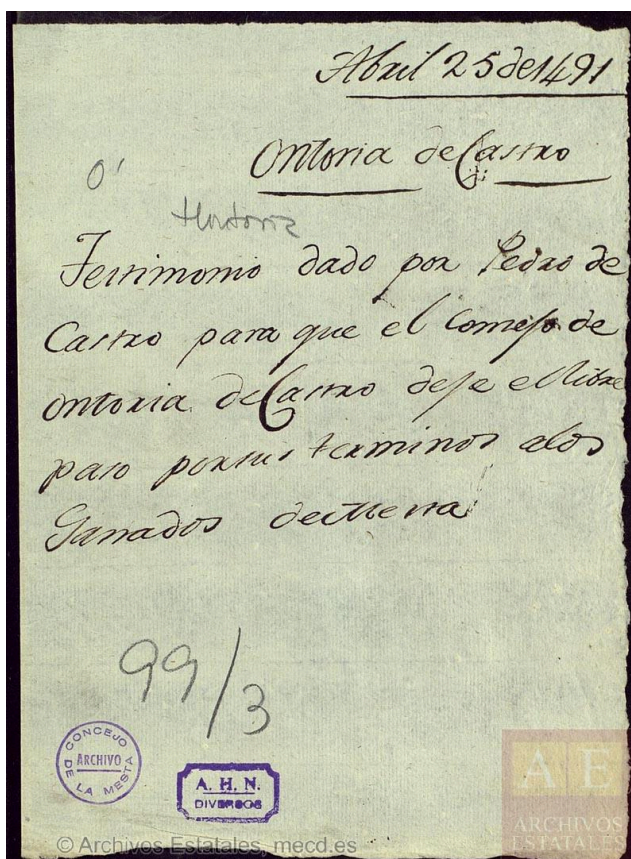 Abril 25 de 1491
Ontoria de Castro
O'
Hontoria
Testimonio dado por Pedro de
Castro para que el Comejo de
Ontoria de Castro deje el libre
paso por sus terminos alos
Ganados de Mesta
99/3
CONCEJO DE LA MESTA
ARCHIVO
A. H. N.
DIVERSOS
AE
ARCHIVOS
ESTATALES
© Archivos Estatales, mecd.es